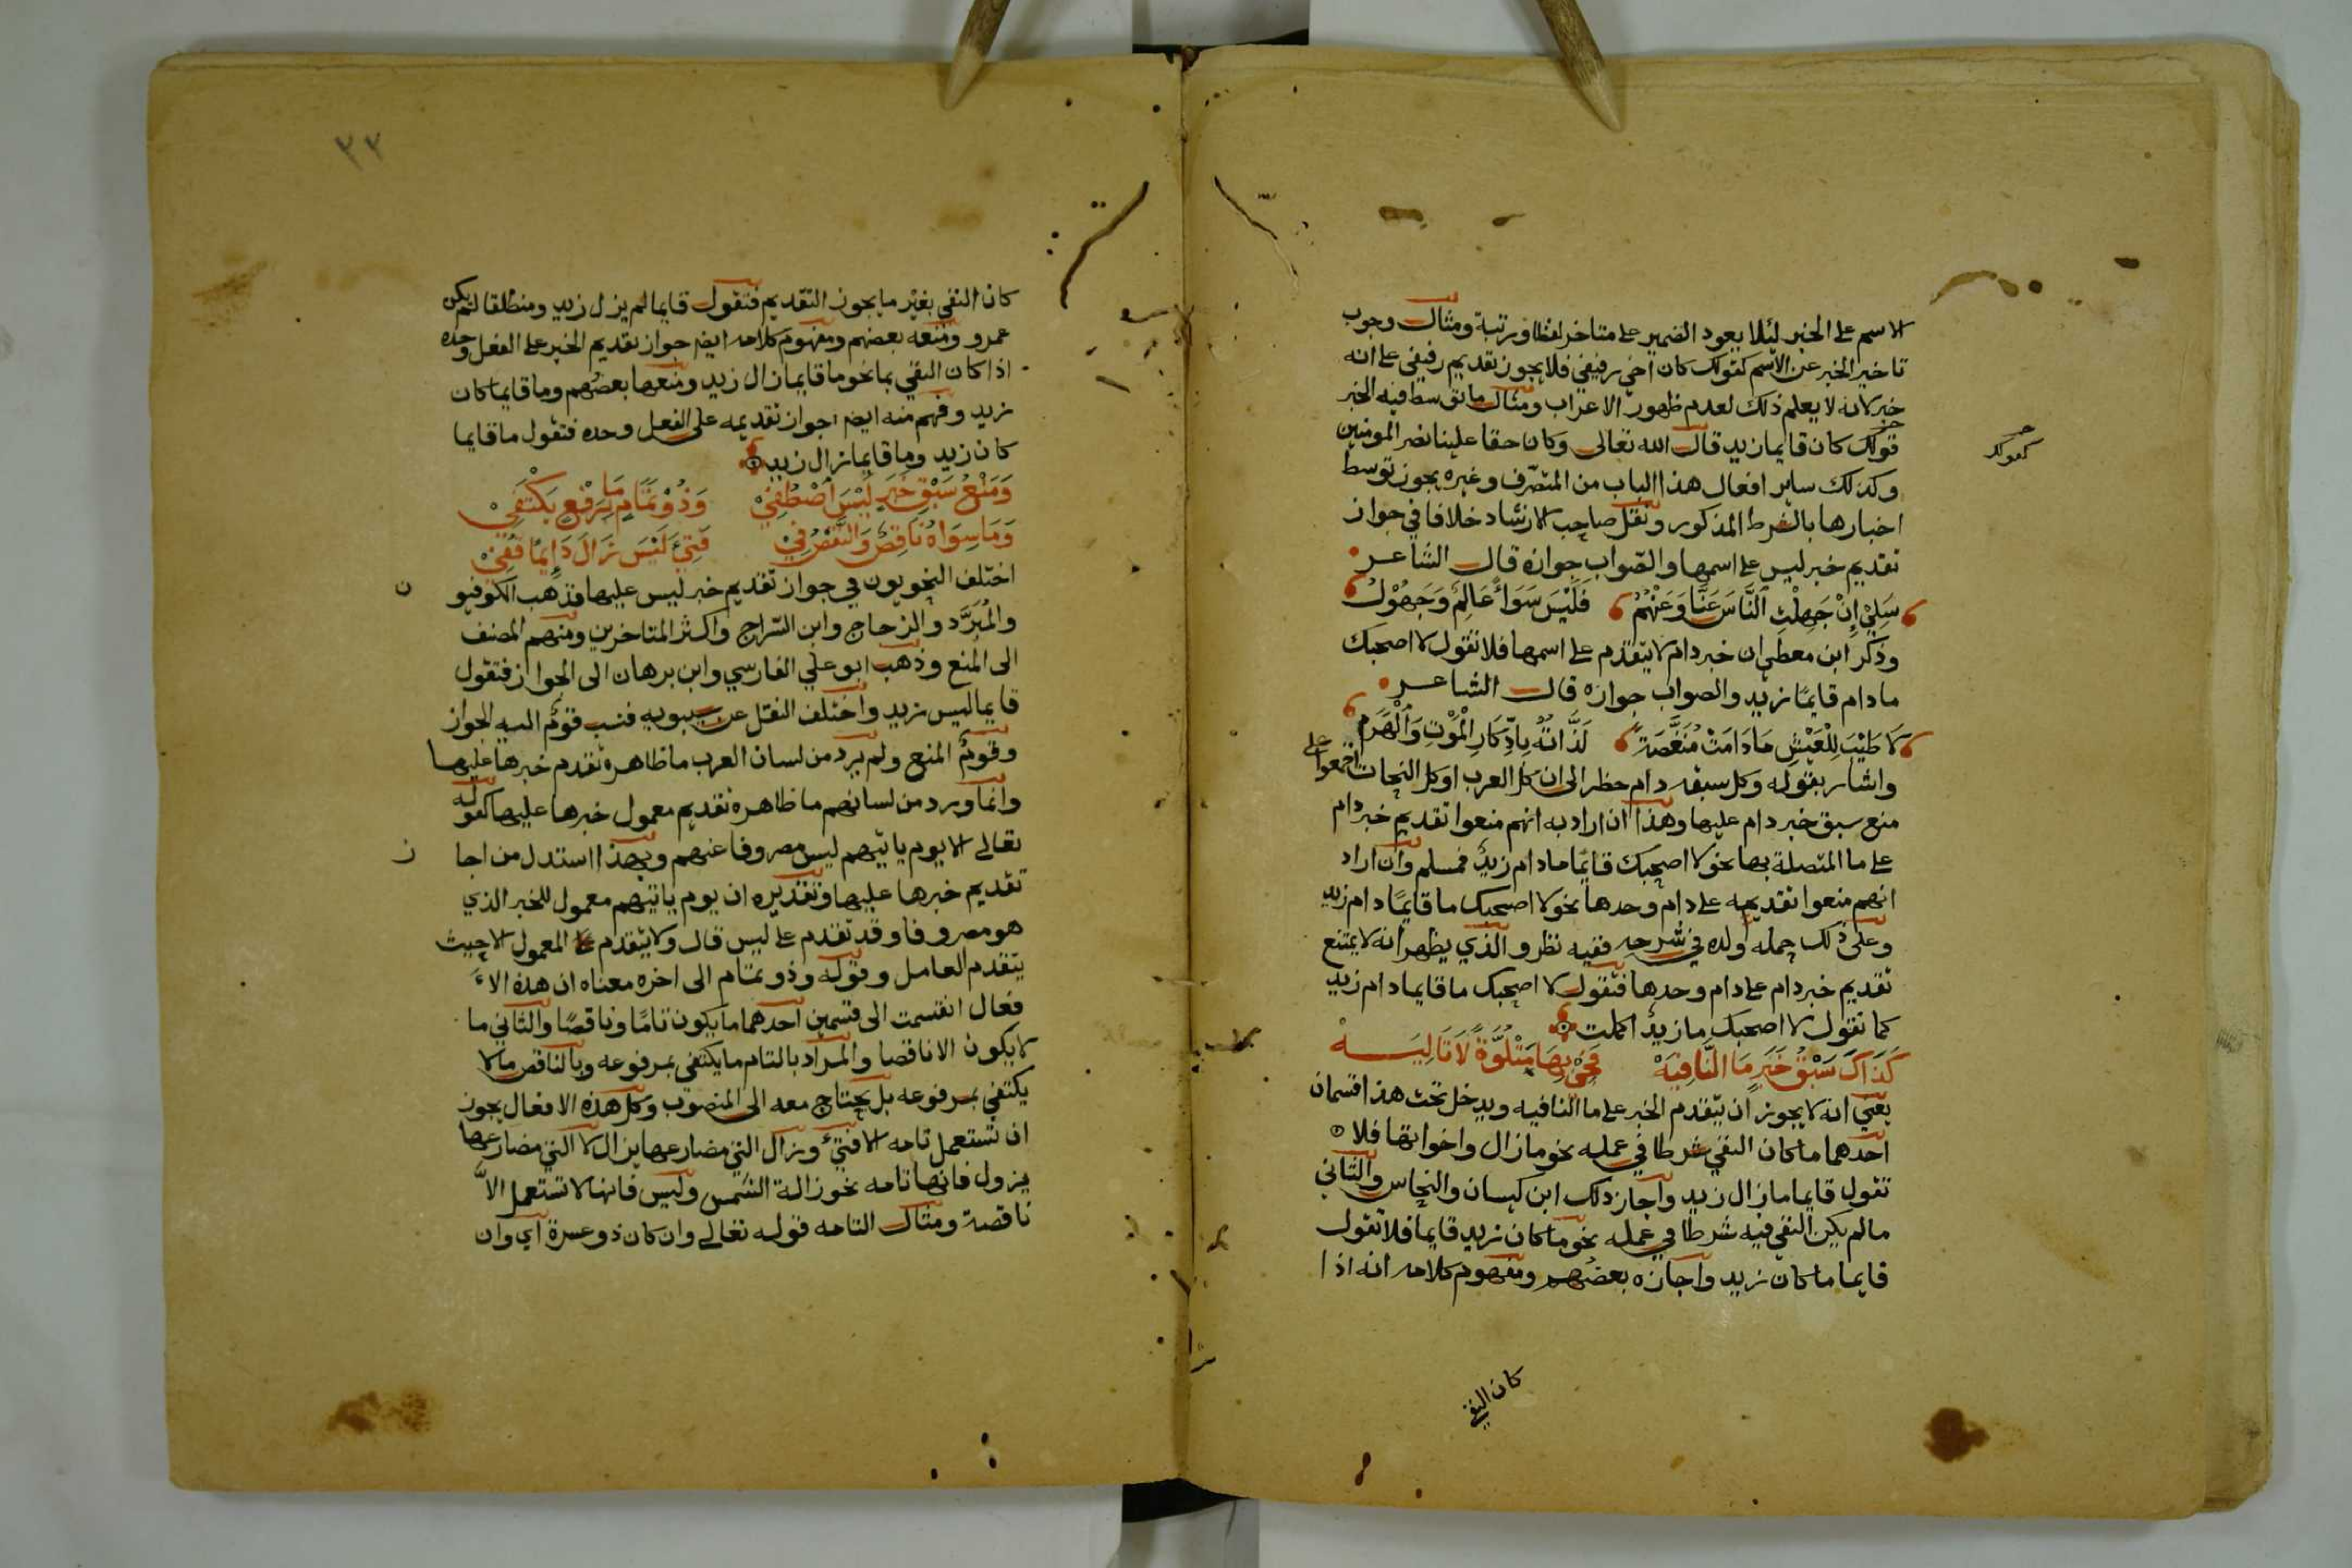 الاسم على الخبر لئلا يعود الضمير على متاخر لفظا ورتبة ومثال وجوب
تاخير الخبر عن الاسم كقولك كان اخي رفيقي فلا يجوز تقديم رفيقي على انه
خبر لانه لا يعلم ذلك لعدم ظهور الاعراب ومثال ما توسط فيه الخبر
قولك كان قايما زيد قال الله تعالى وكان حقا علينا نصر المومنين
كقولك
وكذلك ساير افعال هذا الباب من المتصرف وغيره يجوز توسط
اخبارها بالشرط المذكور ونقل صاحب الارشاد خلافا في جواز
تقديم خبر ليس على اسمها والصواب جوازه قال الشاعر
سَلِي إِنْ جَهِلْتِ النَّاسَ عَنَّا وَعَنْهُمُ فَلَيْسَ سَوَاءً عَالِمٌ وَجَهُوْلُ
وذكر ابن معطي ان خبر دام لا يتقدم على اسمها فلا تقول لا اصحبك
ما دام قايمًا زيد والصواب جوازه قال الشاعر
لا طِيْبَ لِلْعَيْشِ مَا دَامَتْ مُنَغَّصَةً لَذَّاتُهُ بِادِّكَارِ الْمَوْتِ وَالْهَرَمِ
واشار بقوله وكل سبقه دام حظر الى ان كل العرب او كل النحات اجمعوا على
منع سبق خبر دام عليها وهذا ان اراد به انهم منعوا تقديم خبر دام
على ما المتصلة بها نحو لا اصحبك قايمًا ما دام زيد فمسلم وان اراد
انهم منعوا تقديمه على دام وحدها نحو لا اصحبك ما قايمًا دام زيد
وعلى ذلك حمله ولده في شرحه ففيه نظر والذي يظهر انه لا يمتنع
تقديم خبر دام على دام وحدها فتقول لا اصحبك ما قايما دام زيد
كما تقول لا اصحبك ما زيدً اكلمت
كَذَاكَ سَبْقُ خَبَرٍ مَا النَّافِيَهْ فَجِئْ بِهَا مَتْلُوَّةً لَا تَالِيَهْ
يعني انه لا يجوز ان يتقدم الخبر على ما النافيه ويدخل تحت هذا قسمان
احدهما ما كان النفي شرطا في عمله نحو ما زال واخواتها فلا
تقول قايما ما زال زيد واجاز ذلك ابن كيسان والنحاس والثاني
ما لم يكن النفي فيه شرطا في عمله نحو ما كان زيد قايما فلا تقول
قايما ما كان زيد واجازه بعضهم ومفهوم كلامه انه اذا
كان النفي
٣٣
كان النفي بغير ما يجوز التقديم فتقول قايما لم يزل زيد ومنطلقا لم يكن
عمرو ومنعه بعضهم ومفهوم كلامه ايضا جواز تقديم الخبر على الفعل وحده
اذا كان النفي بما نحو ما قايما زال زيد ومنعها بعضهم وما قايما كان
زيد وفهم منه ايضا جواز تقديمه على الفعل وحده فتقول ما قايما
كان زيد وما قايما زال زيد
وَمَنْعُ سَبْقِ خَبَرٍ لَيْسَ اصْطُفِيْ وَذُوْ تَمَامٍ مَا بِرَفْعٍ يَكْتَفِيْ
وَمَا سِوَاهُ نَاقِصٌ وَالنَّقْصُ فِيْ فَتِئَ لَيْسَ زَالَ دَايِمًا قُفِيْ
اختلف النحويون في جواز تقديم خبر ليس عليها فذهب الكوفيو ن
والمُبَرَّد والزجاج وابن السّراج واكثر المتاخرين ومنهم المصنف
الى المنع وذهب ابو علي الفارسي وابن برهان الى الجواز فتقول
قايما ليس زيد واختلف النقل عن سيبويه فنسب قوم اليه الجواز
وقومٌ المنع ولم يرد من لسان العرب ما ظاهره تقدم خبرها عليها
وانما ورد من لسانهم ما ظاهره تقديم معمول خبرها عليها كقوله
تعالى الا يوم ياتيهم ليس مصروفا عنهم وبهذا استدل من اجا ز
تقديم خبرها عليها وتقديره ان يوم ياتيهم معمول للخبر الذي
هو مصروفا وقد تقدم على ليس قال ولا يتقدم المعمول الا حيث
يتقدم العامل وقوله وذو تمام الى اخره معناه ان هذه الا
فعال انقسمت الى قسمين احدهما ما يكون تامًا وناقصًا والثاني ما
لا يكون الا ناقصا والمراد بالتام ما يكتفي بمرفوعه وبالناقص ما لا
يكتفي بمرفوعه بل يحتاج معه الى المنصوب وكل هذه الافعال يجوز
ان تستعمل تامه الا فتئ وزال التي مضارعها يزال لا التي مضارعها
يزول فانها تامه نحو زالة الشمس وليس فانها لا تستعمل الاّ
ناقصة ومثال التامه قوله تعالى وان كان ذو عسرة اي وان